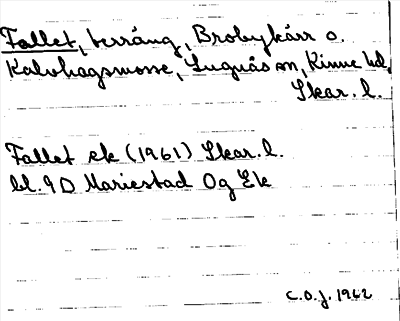 Fallet, terräng, Brobykärr o.
Kalvhagsmosse, Lugnås sn, Kinne hd,
Skar. l.
Fallet ek (1961) Skar. l.
bl. 9D Mariestad Og Ek
C.O.J. 1962